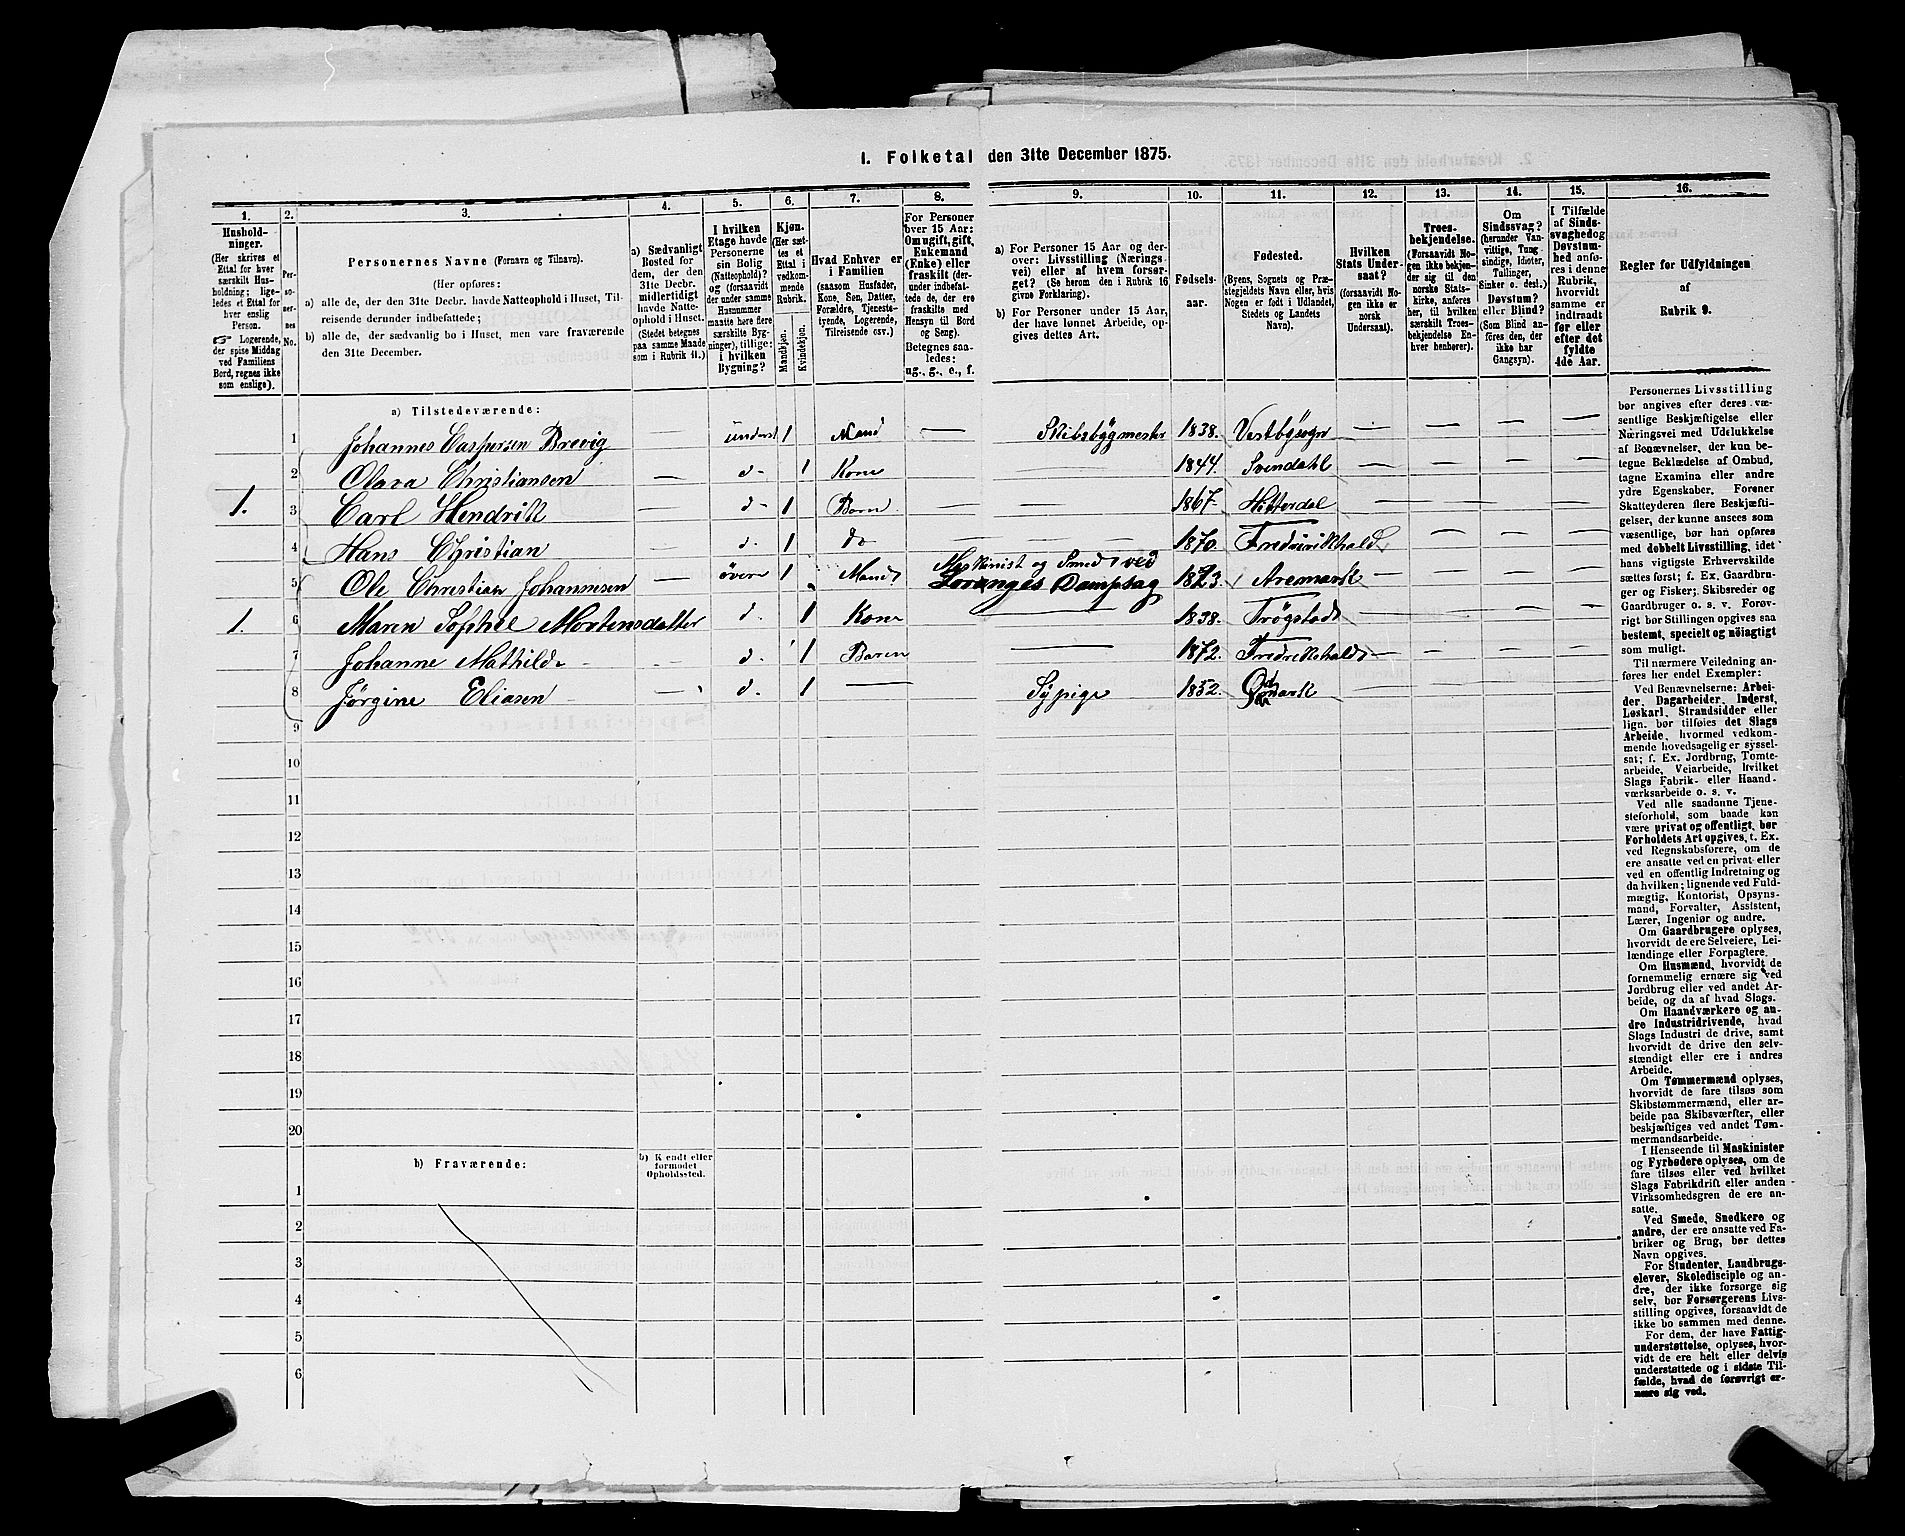 1. Folketal den 31te December 1875.
1. 2. 3. 4. 5. 6. 7. 8. 9. 10. 11. 12. 13. 14. 15. 16.
Hushold-
ninger.
(Her skrives et
Ettal for hver
særskilt Hus-
holdning; lige-
ledes et Ettal for
hver enslig
Person.
☞ Logerende,
der spise Middag
ved Familiens
Bord, regnes ikke
som enslige).
Per-
so-
ner-
nes
No.
Personernes Navne (Fornavn og Tilnavn).
(Her opføres:
a) alle de, der den 31te Decbr. havde Natteophold i Huset, Til-
reisende derunder indbefattede;
b) alle de, der sædvanlig bo i Huset, men vare fraværende
den 31te December.
a) Sædvanligt
Bosted for
dem, der den
31te Decbr.
midlertidigt
havde Natte-
ophold i Huset.
(Stedet betegnes
paa samme Maade
som i Rubrik 11.)
I hvilken
Etage havde
Personerne
sin Bolig
(Natteophold)?
og (forsaavidt
der under samme
Husnummer
maatte høre flere
særskilte Byg-
ninger), tillige:
i hvilken
Bygning?
Kjøn.
(Her sæt-
tes et
Ettal i
vedkom-
mende
Rubrik.
Mandkjøn.
Kvindekjøn.
Hvad Enhver er
i Familien
(saasom Husfader,
Kone, Søn, Datter,
Forældre, Tjeneste-
tyende, Logerende,
Tilreisende osv.)
For Personer
over 15 Aar:
Om ugift, gift,
Enkemand
(Enke) eller
fraskilt (der-
under indbefat-
tede de, der ere
fraskilte med
Hensyn til Bord
og Seng).
Betegnes saa-
ledes:
ug., g., e., f.
a) For Personer 15 Aar og der-
over: Livsstilling (Nærings-
vei) eller af hvem forsør-
get? (Se herom den i Rubrik 16
givne Forklaring).
b) For Personer under 15 Aar,
der have lønnet Arbeide, op-
gives dettes Art.
Fødsels-
aar.
Fødested.
(Byens, Sognets og Præ-
stegjeldets Navn eller, hvis
Nogen er født i Udlandet,
Stedets og Landets
Navn).
Hvilken
Stats Under-
saat?
(forsaavidt No-
gen ikke er
norsk
Undersaat).
Troes-
bekjendelse.
(Forsaavidt No-
gen ikke bekjen-
der sig til den
norske Stats-
kirke, anføres
her, til hvilken
særskilt Troes-
bekjendelse En-
hver henhører).
Om
Sindssvag?
(herunder Van-
vittige, Tung-
sindige, Idioter,
Tullinger,
Sinker o. desl.)
Døvstum?
eller Blind?
(Som Blind an-
føres den, der
ikke har
Gangsyn).
I Tilfælde
af Sinds-
svaghed og
Døvstum-
hed anfø-
res i denne
Rubrik,
hvorvidt
samme er
indtraadt
før eller
efter det
fyldte
4de Aar.
Regler for Udfyldningen
af
Rubrik 9.
a) Tilstedeværende:
1 Johannes Caspersen Brevig — underst 1 Mand — Skibsbygmester 1838. Vestbysogn — — — —
2 Olava Christiansen — d- 1 Kone — 1844. Svendahl — — — —
1. 3 Carl Hendrik — d- 1 Barn — 1867. Hitterdal — — — —
4 Hans Christian — d. 1 do — 1870. Fredrikhald — — —
5 Ole Christian Johannesen — øvere 1 Mand Maskinist og Smed ved
Sorenges Dampsag 1823. Aremark — — — —
1. 6 Maren Sophie Mortensdatter — d. 1 Kone — 1838. Trøgstad — — — —
7 Johanne Mathilde — d. 1 Baren — 1872. Fredrikshald — — — —
8 Jørgine Eliasen — d. 1 — Sypige 1852. — — — —
9
10
11
12
13
14
15
16
17
18
19
20
b) Fraværende:
b) Kjendt eller
formodet
Opholdssted.
1
2
3
4
5
6
Personernes Livsstilling
bør angives efter deres væ-
sentlige Beskjæftigelse eller
Næringsvei med Udelukkelse
af Benævnelser, der kun be-
tegne Beklædelse af Ombud,
tagne Examina eller andre
ydre Egenskaber. Forener
Skatteyderen flere Beskjæfti-
gelser, der kunne ansees som
væsentlige, bør han opføres
med dobbelt Livsstilling, idet
hans vigtigste Erhvervskilde
sættes først; f. Ex. Gaardbru-
ger og Fisker; Skibsreder og
Gaardbruger o. s. v. Forøv-
rigt bør Stillingen opgives saa
bestemt, specielt og nöiagtigt
som muligt.
Til nærmere Veiledning an-
føres her endel Exempler:
Ved Benævnelserne: Arbei-
der, Dagarbeider, Inderst,
Løskarl, Strandsidder eller
lign. bør tilføies det Slags
Arbeide, hvormed vedkom-
mende hovedsagelig er syssel-
sat; f. Ex. Jordbrug, Tomte-
arbeide, Veiarbeide, hvilket
Slags Fabrik- eller Haand-
værksarbeide o. s. v.
Ved alle saadanne Tjene-
steforhold, som baade kan
være privat og offentligt, bør
Forholdets Art opgives, t. Ex.
ved Regnskabsførere, om de
ere ansatte ved en privat eller
ved en offentlig Indretning og
da hvilken; lignende ved Fuld-
mægtig, Kontorist, Opsyns-
mand, Forvalter, Assistent,
Lærer, Ingeniør og andre.
Om Gaardbrugere oplyses,
hvorvidt de ere Selveiere, Lei-
lændinge eller Forpagtere.
Om Husmænd, hvorvidt de
fornemmelig ernære sig ved
Jordbrug eller ved andet Ar-
beide, og da af hvad Slags.
Om Haandværkere og an-
dre Industridrivende, hvad
Slags Industri de drive, samt
hvorvidt de drive den selv-
stændigt eller ere i andres
Arbeide.
Om Tømmermænd oplyses,
hvorvidt de fare tilsøs som
Skibstømmermænd, eller ar-
beide paa Skibsværfter, eller
beskjæftiges ved andet Tøm-
mermandsarbeide.
I Henseende til Maskinister
og Fyrbødere oplyses, om de
fare tilsøs eller ved hvilket
Slags Fabrikdrift eller anden
Virksomhedsgren de ere an-
satte.
Ved Smede, Snedkere og
andre, der ere ansatte ved Fa-
briker og Brug, bør dettes
Navn opgives.
For Studenter, Landbrugs-
elever, Skoledisciple og an-
dre, der ikke forsørge sig
selv, bør Forsørgerens Livs-
stilling opgives, forsaavidt de
ikke bo sammen med denne.
For dem, der have Fattig-
understøttelse, oplyses, hvor-
vidt de ere helt eller delvis
understøttede og i sidste Til-
fælde, hvad de forøvrigt er-
nære sig ved.